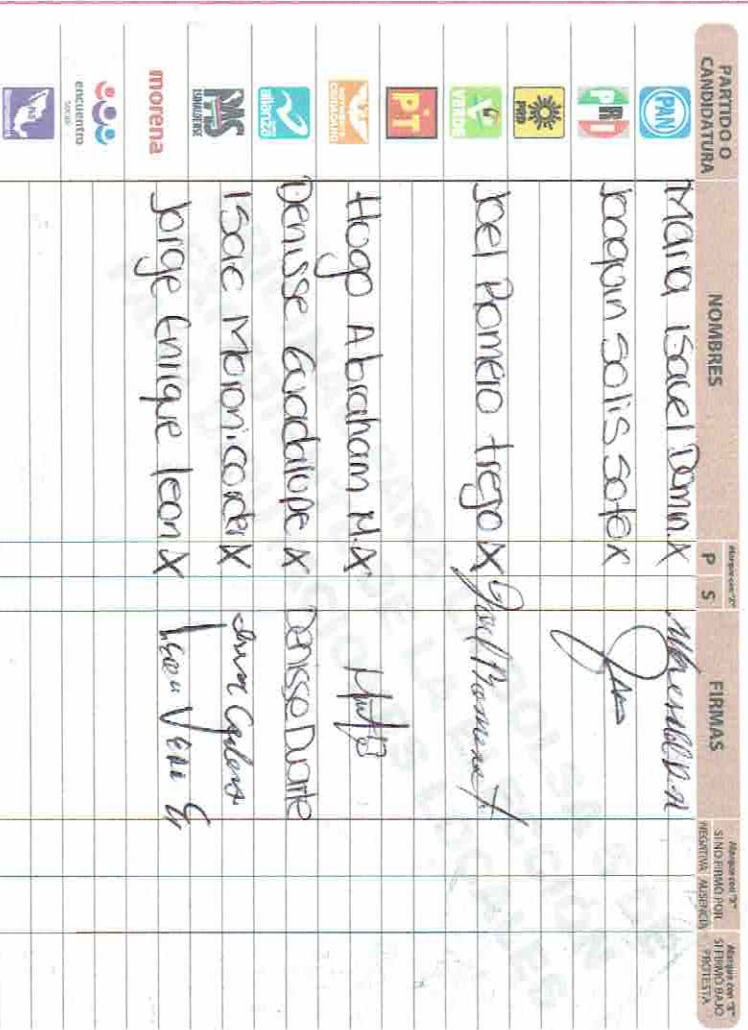 PARTIDO O CANDIDATURA NOMBRES Marque con "X" P S FIRMAS Marque con "X" SI NO FIRMÓ POR NEGATIVA AUSENCIA Marque con "X" SI FIRMÓ BAJO PROTESTA
PAN Maria Isavel Domin. X
PRI Joaquin Solis Soto X
PRD
VERDE Joel Romero trejo X Joel Romero T
PT
MOVIMIENTO CIUDADANO Hugo Abraham M. X
alianza Denisse Guadalupe X Denisse Duarte
PAS SINALOENSE Isac Moroni. X
morena Jorge Enrique leon X
encuentro social